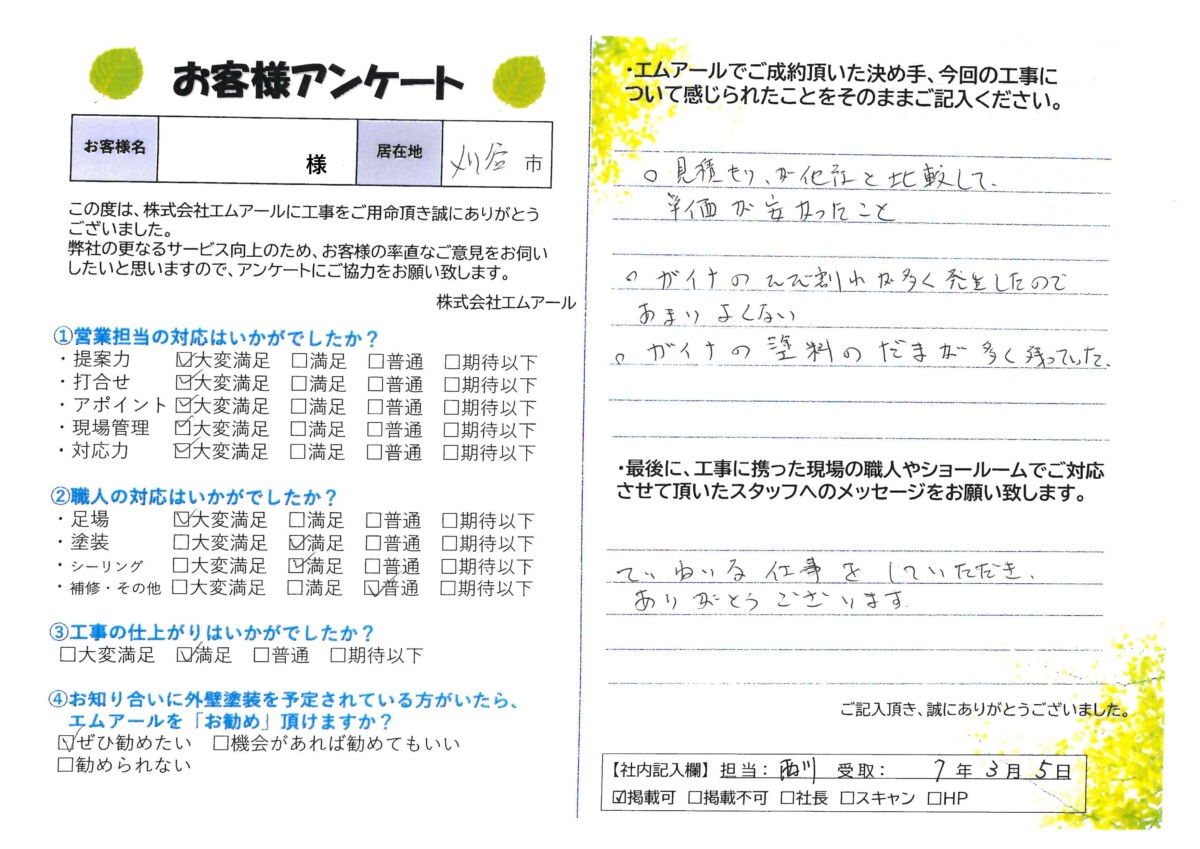 お客様アンケート
お客様名 様 居在地 刈谷市
この度は、株式会社エムアールに工事をご用命頂き誠にありがとう
ございました。
弊社の更なるサービス向上のため、お客様の率直なご意見をお伺い
したいと思いますので、アンケートにご協力をお願い致します。
株式会社エムアール
①営業担当の対応はいかがでしたか？
・提案力 ☑大変満足 □満足 □普通 □期待以下
・打合せ ☑大変満足 □満足 □普通 □期待以下
・アポイント ☑大変満足 □満足 □普通 □期待以下
・現場管理 ☑大変満足 □満足 □普通 □期待以下
・対応力 ☑大変満足 □満足 □普通 □期待以下
②職人の対応はいかがでしたか？
・足場 ☑大変満足 □満足 □普通 □期待以下
・塗装 □大変満足 ☑満足 □普通 □期待以下
・シーリング □大変満足 ☑満足 □普通 □期待以下
・補修・その他 □大変満足 □満足 ☑普通 □期待以下
③工事の仕上がりはいかがでしたか？
□大変満足 ☑満足 □普通 □期待以下
④お知り合いに外壁塗装を予定されている方がいたら、
エムアールを「お勧め」頂けますか？
☑ぜひ勧めたい □機会があれば勧めてもいい
□勧められない
・エムアールでご成約頂いた決め手、今回の工事に
ついて感じられたことをそのままご記入ください。
○ 見積もり、が他社と比較して、
単価が安かったこと
○ ガイナのひび割れが多く発生したので
あまりよくない
○ ガイナの塗料のだまが多く残っていた、
・最後に、工事に携った現場の職人やショールームでご対応
させて頂いたスタッフへのメッセージをお願い致します。
ていねいる仕事をしていただき、
ありがとうございます。
ご記入頂き、誠にありがとうございました。
【社内記入欄】 担当： 西川 受取： 7 年 3 月 5 日
☑掲載可 □掲載不可 □社長 □スキャン □HP